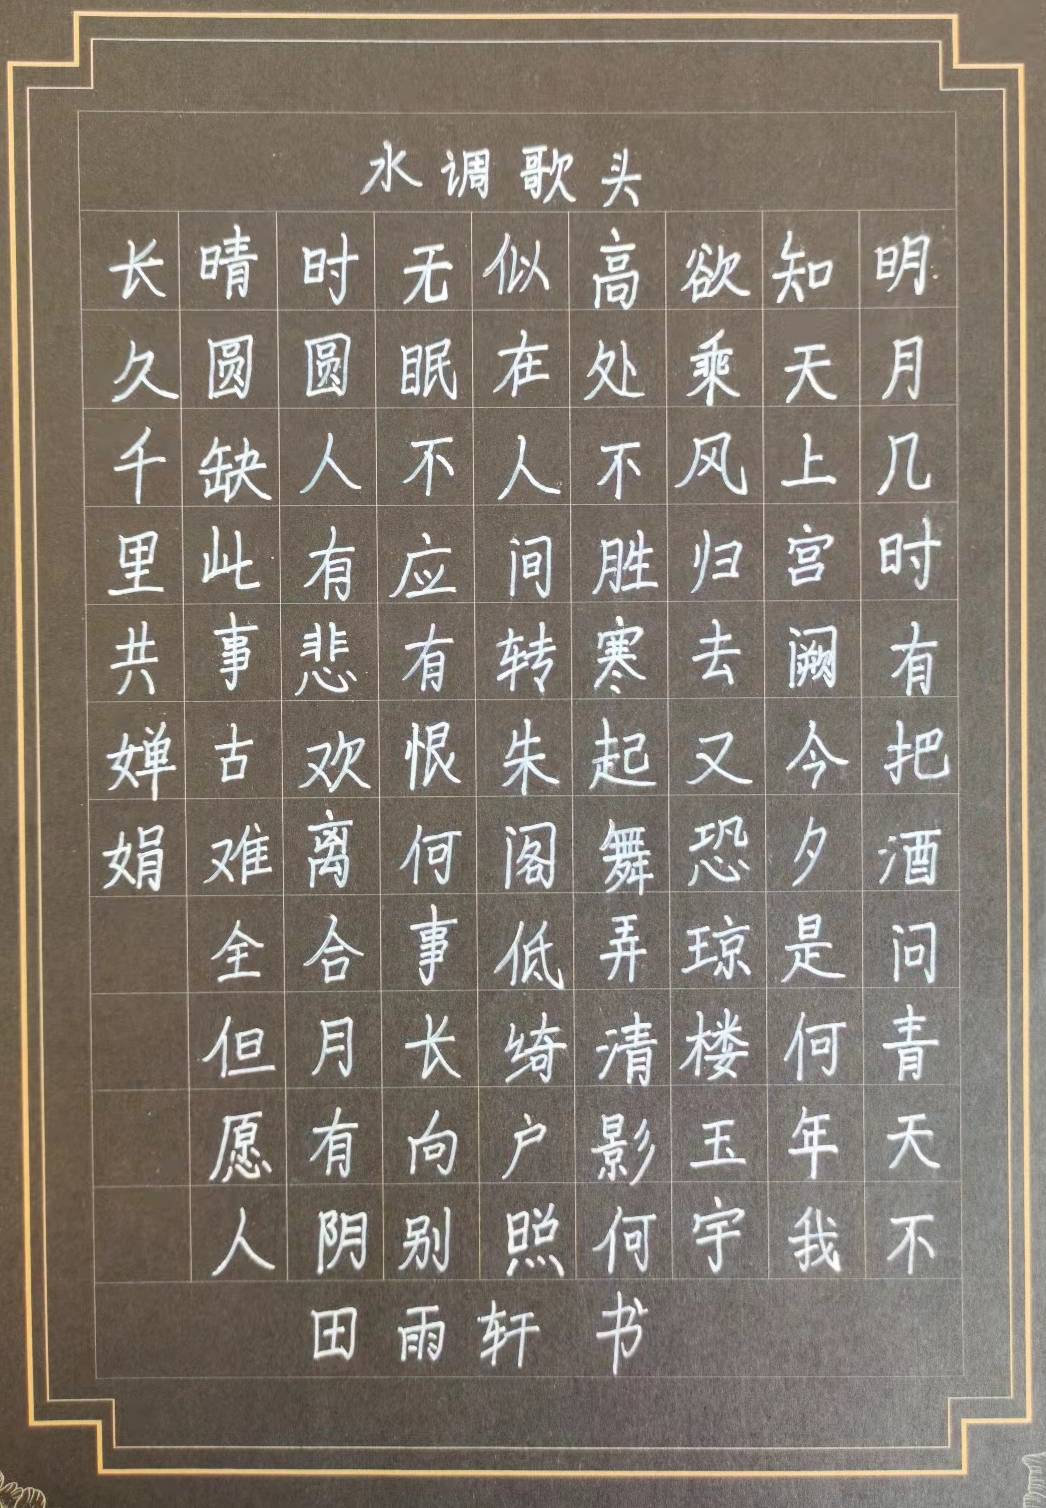 水调歌头
明月几时有把酒问青天不
知天上宫阙今夕是何年我
欲乘风归去又恐琼楼玉宇
高处不胜寒起舞弄清影何
似在人间转朱阁低绮户照
无眠不应有恨何事长向别
时圆人有悲欢离合月有阴
晴圆缺此事古难全但愿人
长久千里共婵娟
田雨轩 书